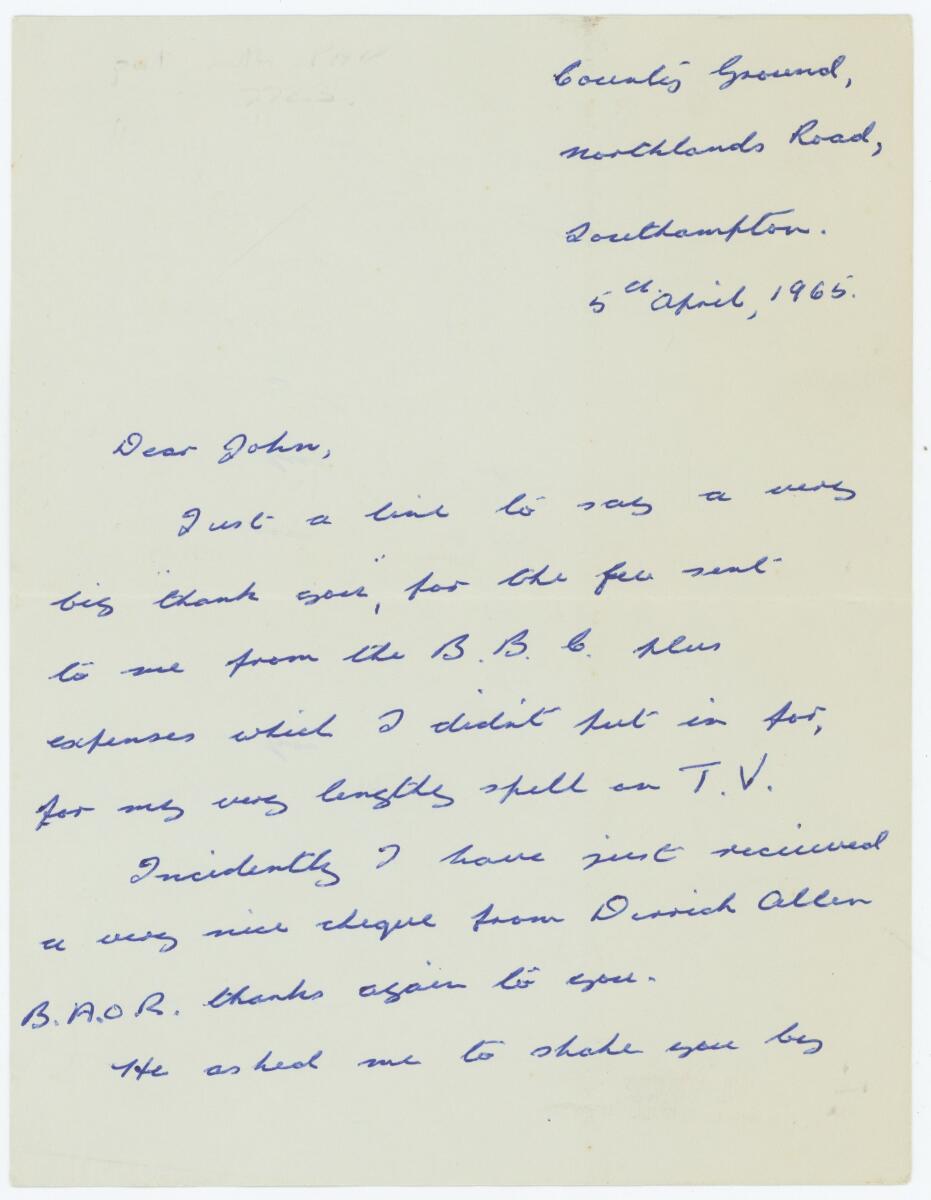 County Ground,
Northlands Road,
Southampton.
5th April, 1965.
Dear John,
Just a line to say a very
big "thank you", for the fee sent
to me from the B.B.C. plus
expenses which I didn't put in for,
for my very lengthy spell on T.V.
Incidently I have just recieved
a very nice cheque from Derrick Allen
B.A.O.R. thanks again to you.
He asked me to shake you by